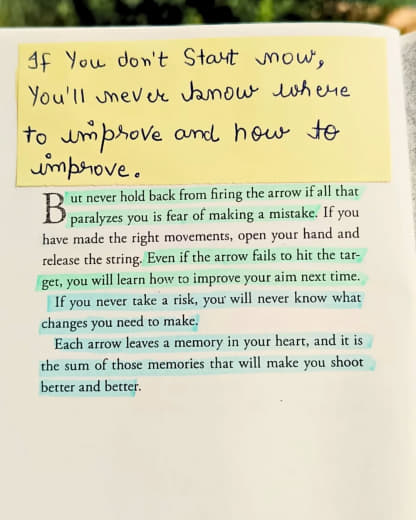 If You don't Start now,
You'll never know where
to improve and how to
improve.
But never hold back from firing the arrow if all that
paralyzes you is fear of making a mistake. If you
have made the right movements, open your hand and
release the string. Even if the arrow fails to hit the tar-
get, you will learn how to improve your aim next time.
If you never take a risk, you will never know what
changes you need to make.
Each arrow leaves a memory in your heart, and it is
the sum of those memories that will make you shoot
better and better.